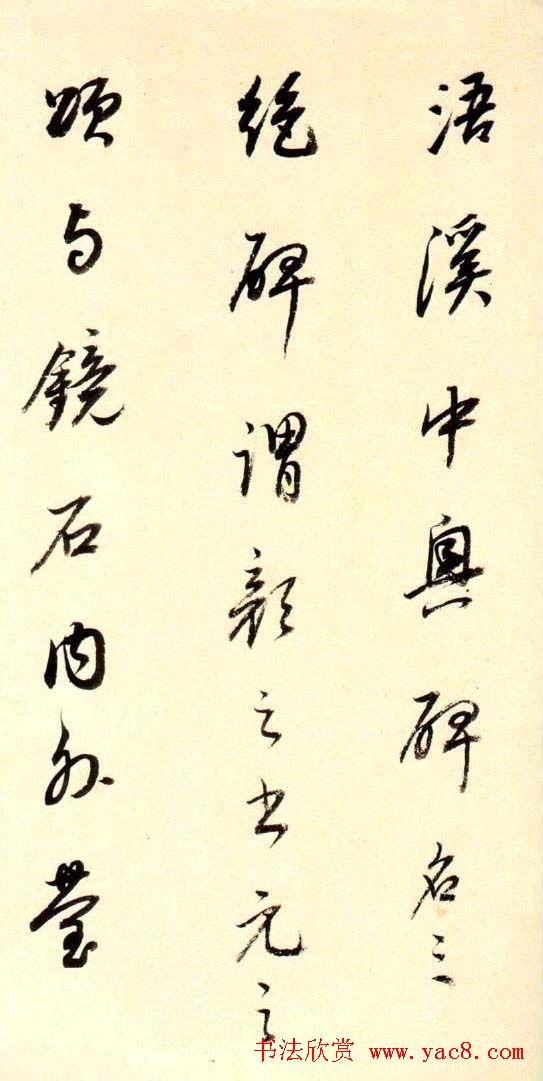 浯溪中興碑名三
絶碑謂顔之书元之
頌与鏡石内外瑩
书法欣赏 www.yac8.com